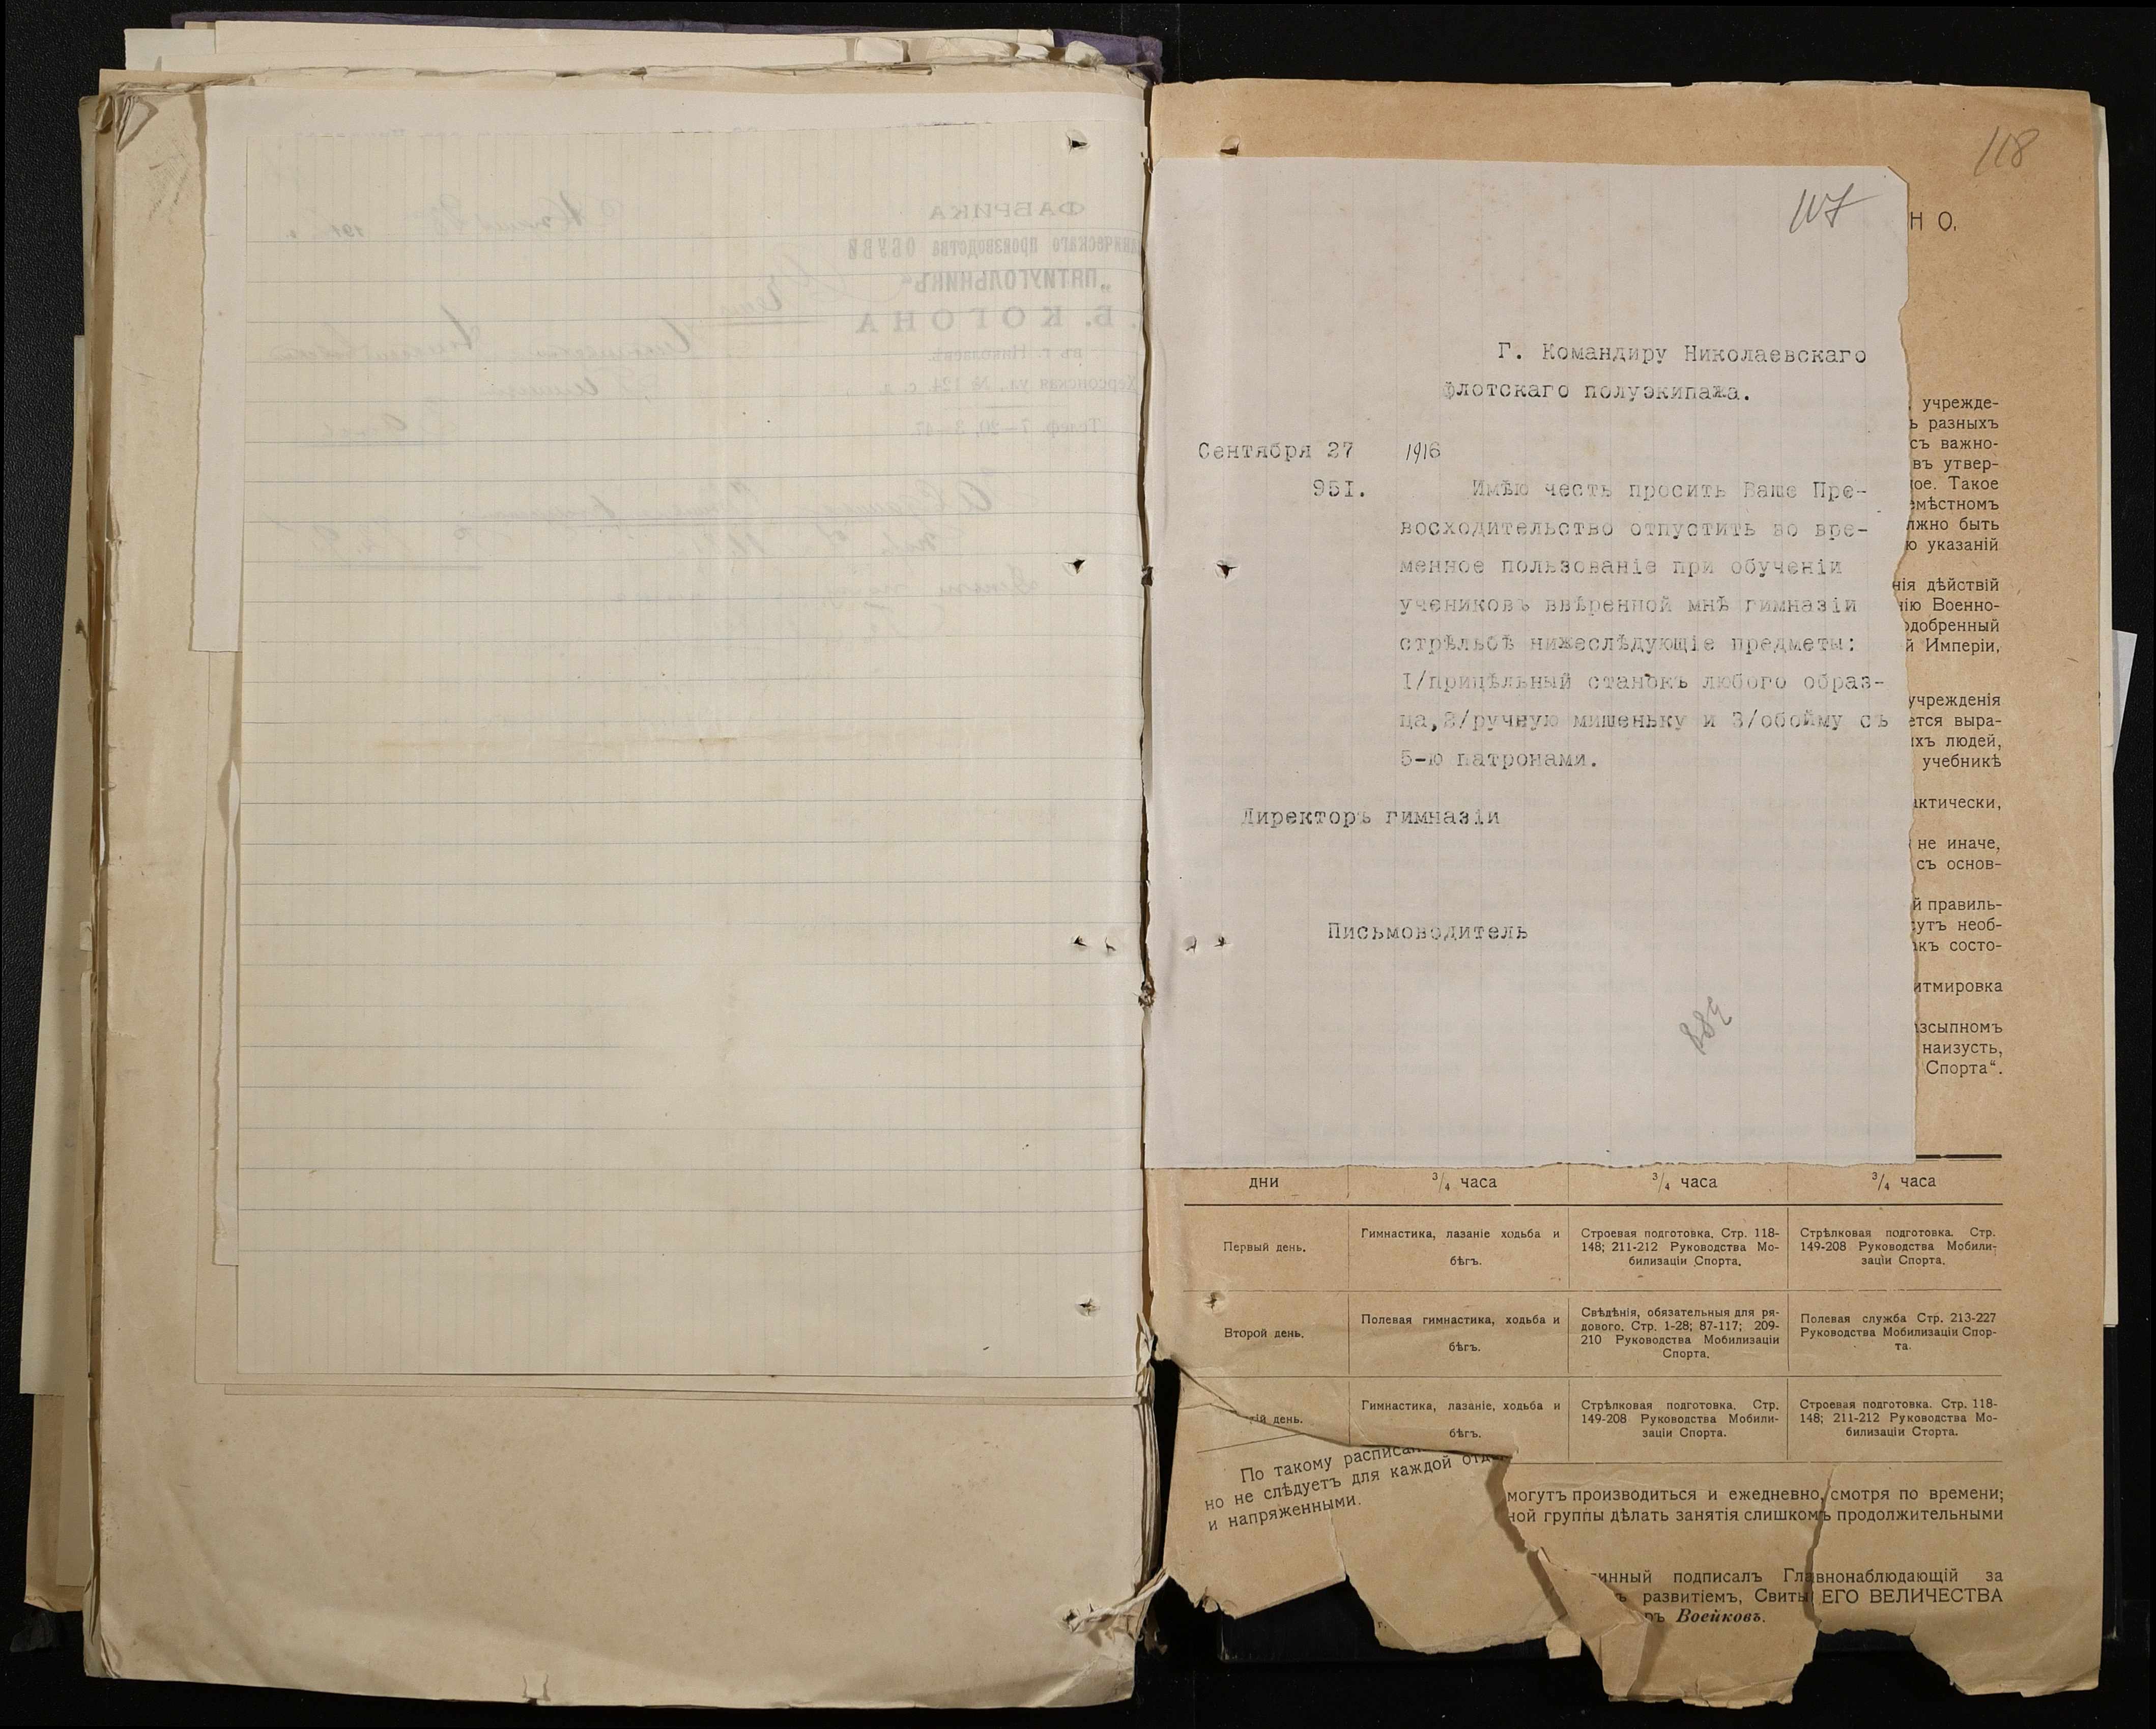 118
107
Г. Командиру Николаевскаго
флотскаго полуэкипажа.
Сентября 27 1916
951.
Имѣю честь просить Ваше Пре-
восходительство отпустить во вре-
менное пользованіе при обученіи
учениковъ ввѣренной мнѣ гимназіи
стрѣльбѣ нижеслѣдующіе предметы:
I/прицѣльный станокъ любого образ-
ца,2/ручную мишеньку и 3/обойму съ
5-ю патронами.
Директоръ гимназіи
Письмоводитель
НО.
учрежде-
ь разныхъ
съ важно-
въ утвер-
ое. Такое
емѣстномъ
лжно быть
ю указаній
нія дѣйствій
нію Военно-
одобренный
й Имперіи,
учрежденія
ется выра-
ихъ людей,
учебникѣ
актически,
не иначе,
съ основ-
й правиль-
сутъ необ-
акъ состо-
итмировка
азсыпномъ
наизусть,
Спорта“.
дни 3/4 часа 3/4 часа 3/4 часа
Первый день.
Гимнастика, лазаніе ходьба и
бѣгъ.
Строевая подготовка. Стр. 118-
148; 211-212 Руководства Мо-
билизаціи Спорта.
Стрѣлковая подготовка. Стр.
149-208 Руководства Мобили-
заціи Спорта.
Второй день.
Полевая гимнастика, ходьба и
бѣгъ.
Свѣдѣнія, обязательныя для ря-
дового. Стр. 1-28; 87-117; 209-
210 Руководства Мобилизаціи
Спорта.
Полевая служба Стр. 213-227
Руководства Мобилизаціи Спор-
та.
тій день.
Гимнастика, лазаніе, ходьба и
бѣгъ.
Стрѣлковая подготовка. Стр.
149-208 Руководства Мобили-
заціи Спорта.
Строевая подготовка. Стр. 118-
148; 211-212 Руководства Мо-
билизаціи Сторта.
По такому расписан могутъ производиться и ежедневно, смотря по времени;
но не слѣдуетъ для каждой отд ной группы дѣлать занятія слишкомъ продолжительными
и напряженными.
инный подписалъ Главнонаблюдающій за
ъ развитіемъ, Свиты ЕГО ВЕЛИЧЕСТВА
ръ Воейковъ.
ФАБРИКА
аническаго производства ОБУВИ
„ПЯТИУГОЛЬНИКЪ“
Б. КОГОНА
въ г. Николаевѣ.
Херсонская ул., № 124, с. д.
Телеф. 7—20, 3—47.